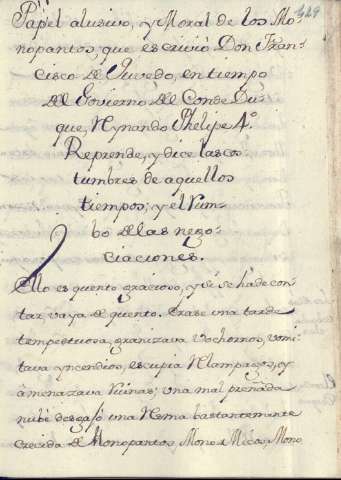 329
Papel alusivo, y Moral de los Mo-
nopantos, que escrivió Don Fran-
cisco de Quevedo, en tiempo
del Govierno del Conde Du-
que, Reynando Phelipe 4º
Reprende, y dice las cos-
tumbres de aquellos
tiempos; y el Rum-
bo de las nego-
ciaciones.
Ello es quento gracioso, y si se há de con-
tar, vaya de quento. Erase una tarde
tempestuosa, granizava vochornos, vomi-
tava yncendios, escupia Relampagos, y
amenazava Ruinas; una mal preñada
nube desgajó una Rema bastantemente
crecida de Monopantos, Monos Micos, Mono